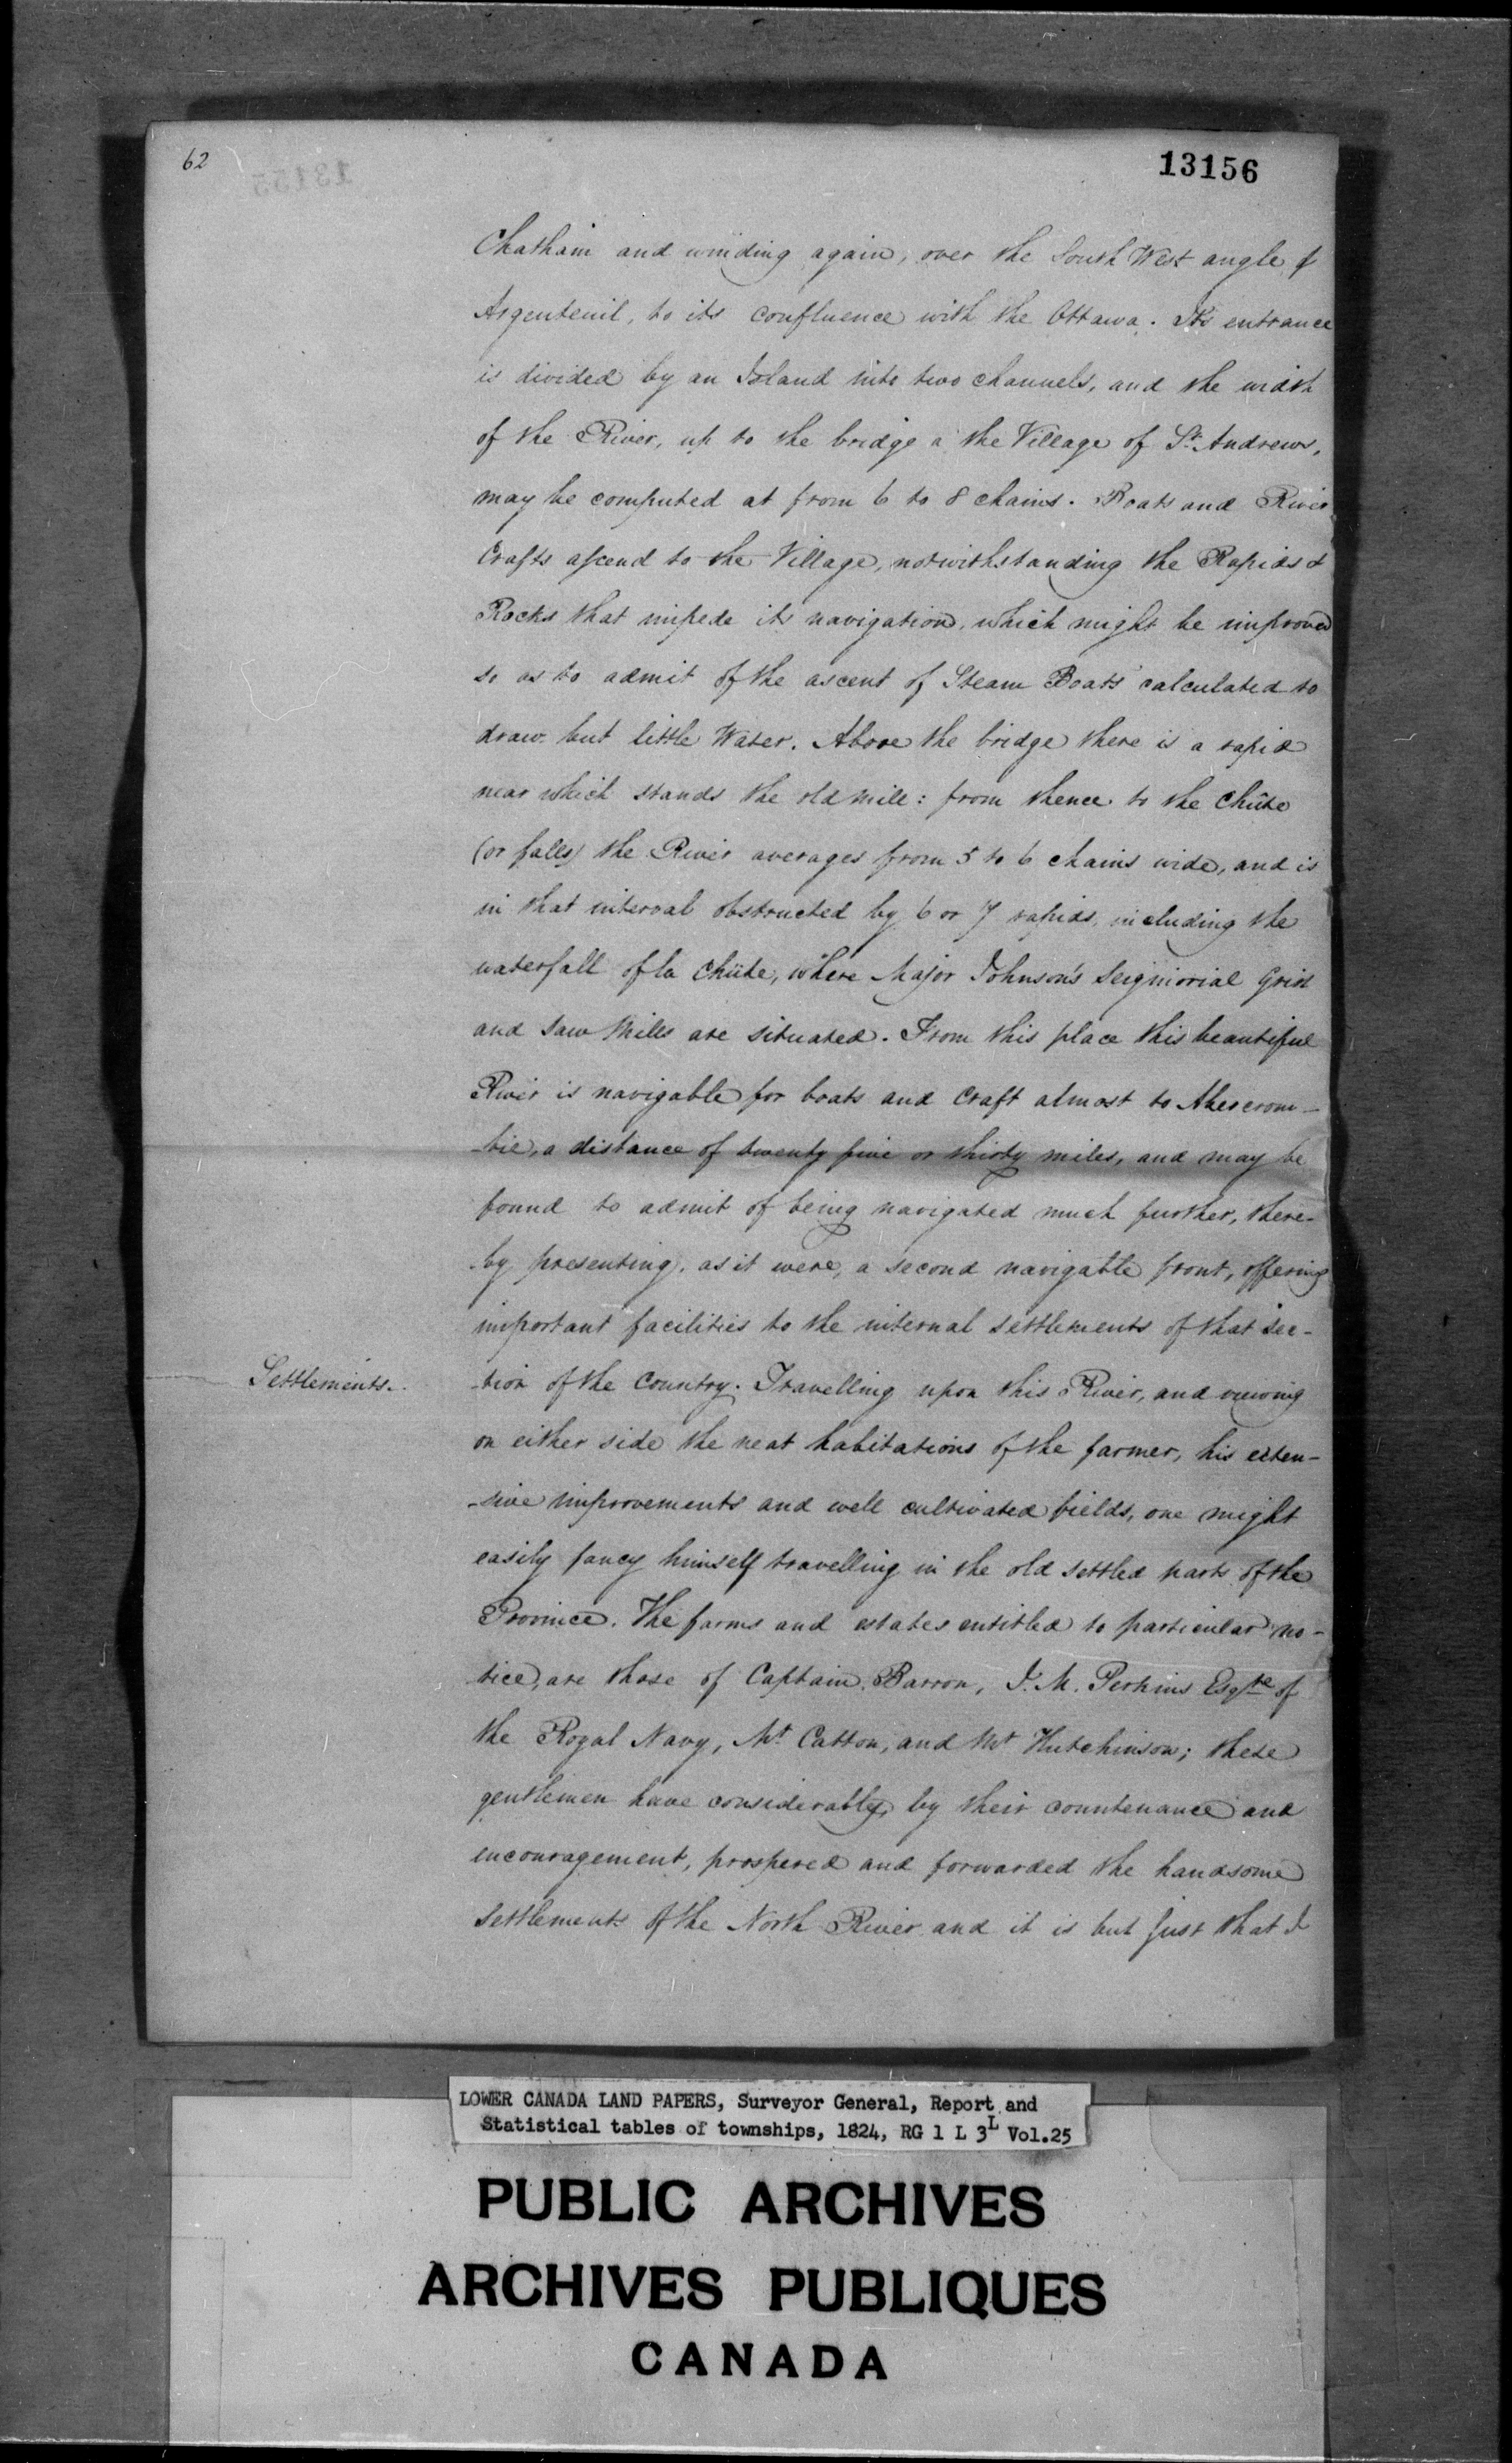 62
13155
13156
Chatham and winding again, over the South West angle of
Argenteuil, to its confluence with the Ottawa. Its entrance
is divided by an Island into two channels, and the width
of the River, up to the bridge a the Village of St. Andrews,
may be computed at from 6 to 8 chains. Boats and River
Crafts ascend to the Village, notwithstanding the Rapids &
Rocks that impede its navigation, which might be improved
so as to admit of the ascent of Steam Boats calculated to
draw but little Water. Above the bridge there is a rapid
near which stands the old mill: from thence to the Chûte
(or falls) the River averages from 5 to 6 chains wide, and is
in that interval obstructed by 6 or 7 rapids, including the
waterfall of la Chûte, where Major Johnson's Seigniorial Grist
and Saw Mills are situated. From this place this beautiful
River is navigable for boats and Craft almost to Abercrom-
-bie, a distance of twenty five or thirty miles, and may be
found to admit of being navigated much further, there-
by presenting, as it were, a second navigable front, offering
important facilities to the internal settlements of that sec-
Settlements.
-tion of the Country. Travelling upon this River, and viewing
on either side the neat habitations of the farmer, his exten-
-sive improvements and well cultivated fields, one might
easily fancy himself travelling in the old settled parts of the
Province. The farms and estates entitled to particular no-
tice, are those of Captain Barron, J. M. Perkins Esqre of
the Royal Navy, Mr. Catton, and Mr Hutchinson; these
gentlemen have considerably, by their countenance and
encouragement, prospered and forwarded the handsome
settlements of the North River and it is but just that I
LOWER CANADA LAND PAPERS, Surveyor General, Report and
Statistical tables of townships, 1824, RG 1 L 3L Vol.25
PUBLIC ARCHIVES
ARCHIVES PUBLIQUES
CANADA